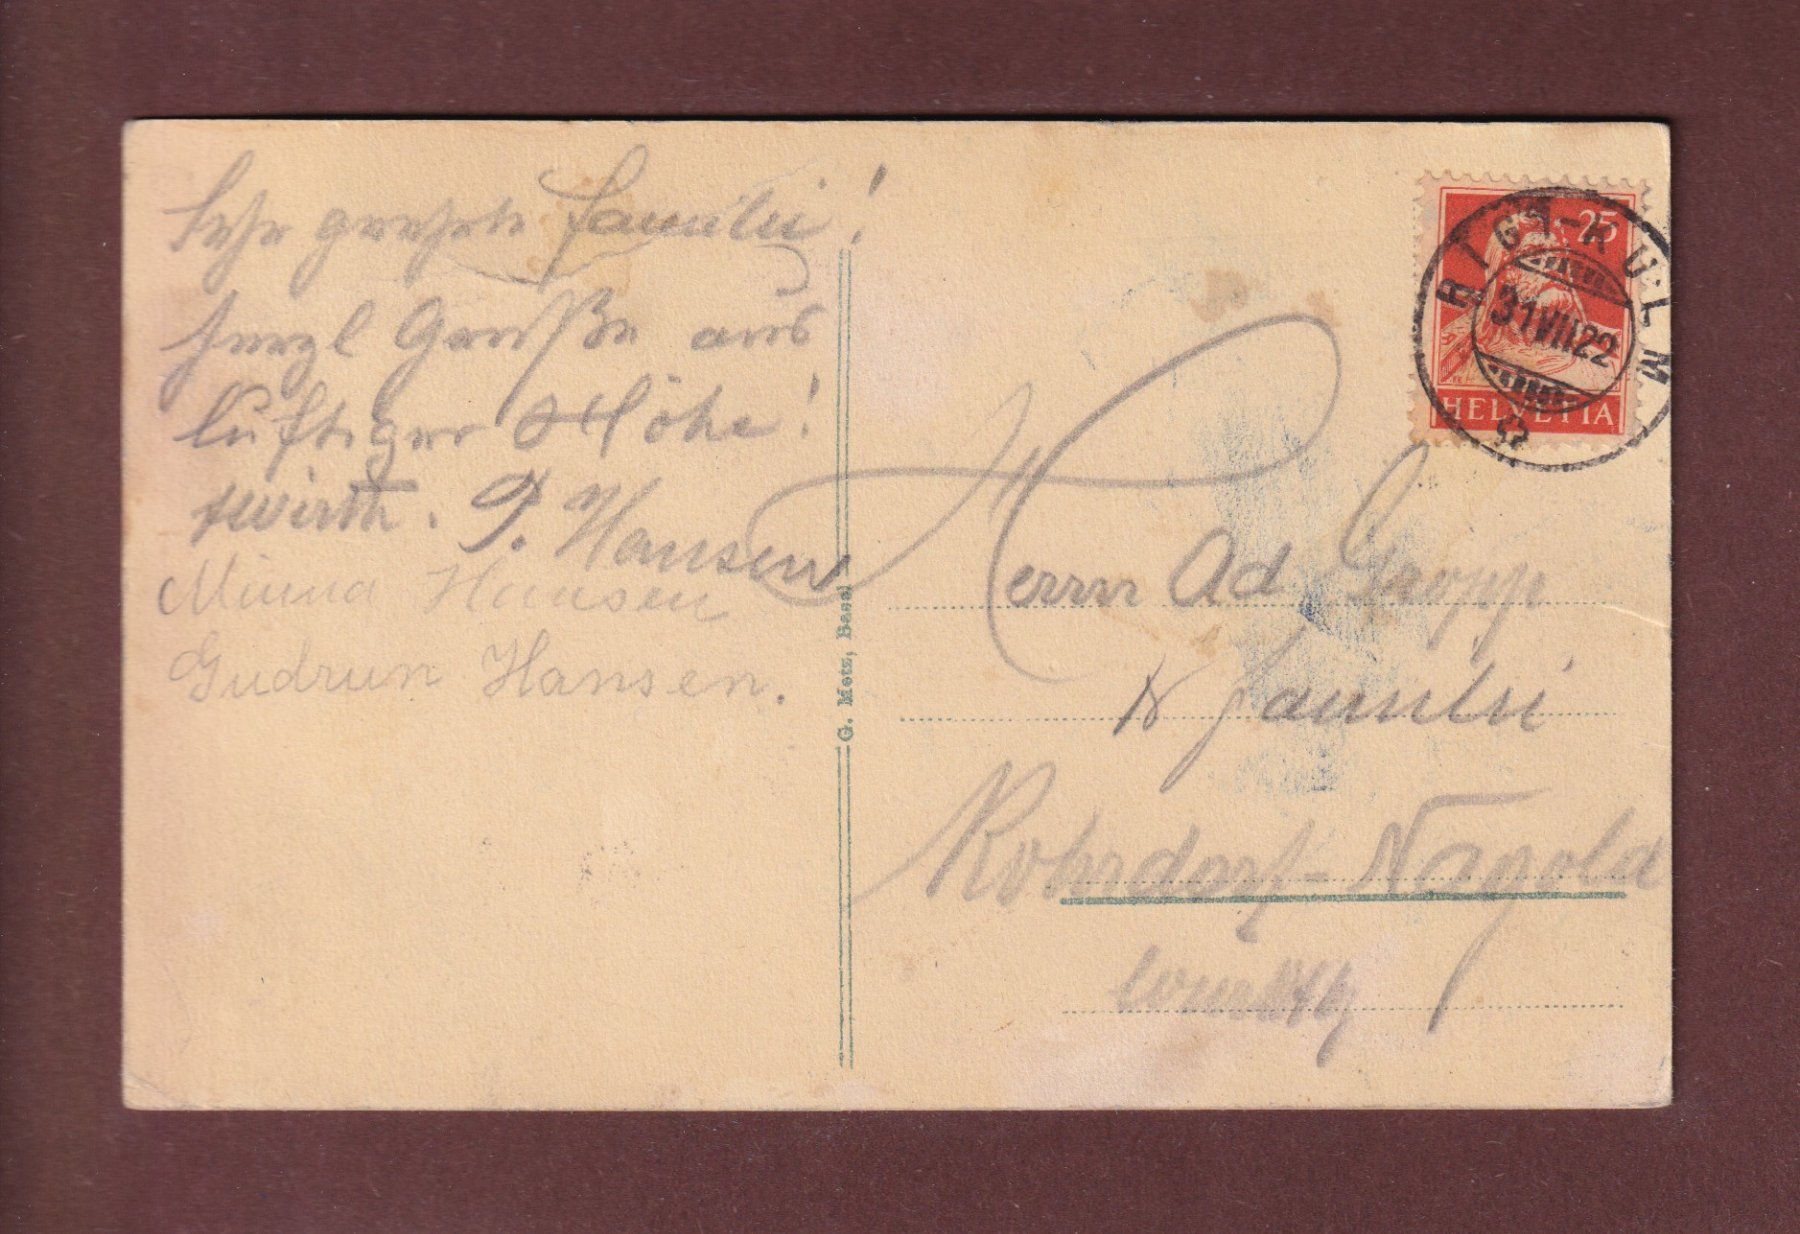 Sehr geehrte Familie!
herzl Grüße aus
luftiger Höhe!
P. Hansen
Minna Hansen
Gudrun Hansen.
G. Metz, Basel
25
HELVETIA
RIGI-KULM
31 VII 22
Herrn Ad. Gropp
& Familie
Rohrdorf-Nagold
Württbg